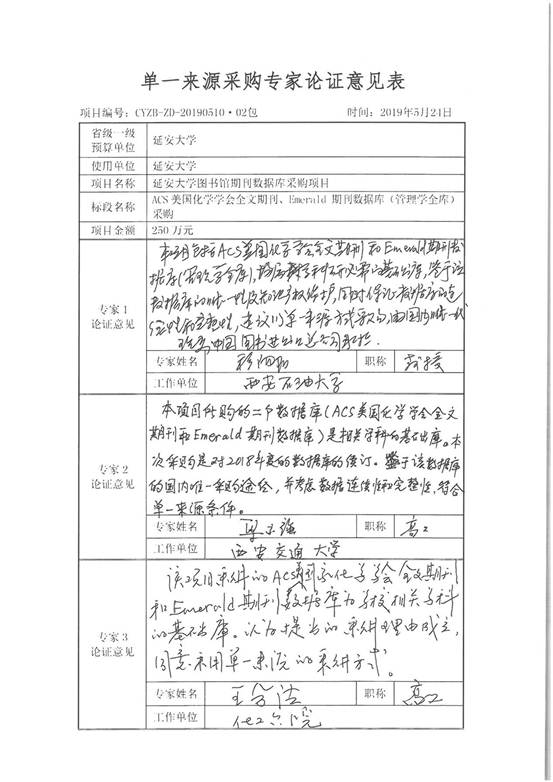 单一来源采购专家论证意见表
项目编号：CYZB-ZD-20190510·02包 时间：2019年5月24日
省级一级预算单位 延安大学
使用单位 延安大学
项目名称 延安大学图书馆期刊数据库采购项目
标段名称 ACS美国化学学会全文期刊、Emerald 期刊数据库（管理学全库）
采购
项目金额 250 万元
专家1
论证意见
本项目包括ACS美国化学学会全文期刊和Emerald期刊数
据库(管理学全库),
数据库的唯一性及知识产权保护,同时保证数据库的连
续性和完整性,建议以单一来源方式采购,由国内唯一代
中国图书进出口总公司
专家姓名 职称 教授
工作单位 西安石油大学
专家2
论证意见
本项目所购的二个数据库(ACS美国化学学会全文
期刊和Emerald期刊数据库)是相关学科的基础出库。本
次采购是对2018年度的数据库的续订。鉴于该数据库
的国内唯一采购途径,并考虑数据连续性和完整性,符合
单一来源条件。
专家姓名 职称 高工
工作单位 西安交通大学
专家3
论证意见
该项目采购的ACS美国化学学会全文期刊
和Emerald期刊数据库为学校相关学科
的基础库。认为提出的采购理由成立,
同意采用单一来源的采购方式。
专家姓名 职称 高工
工作单位